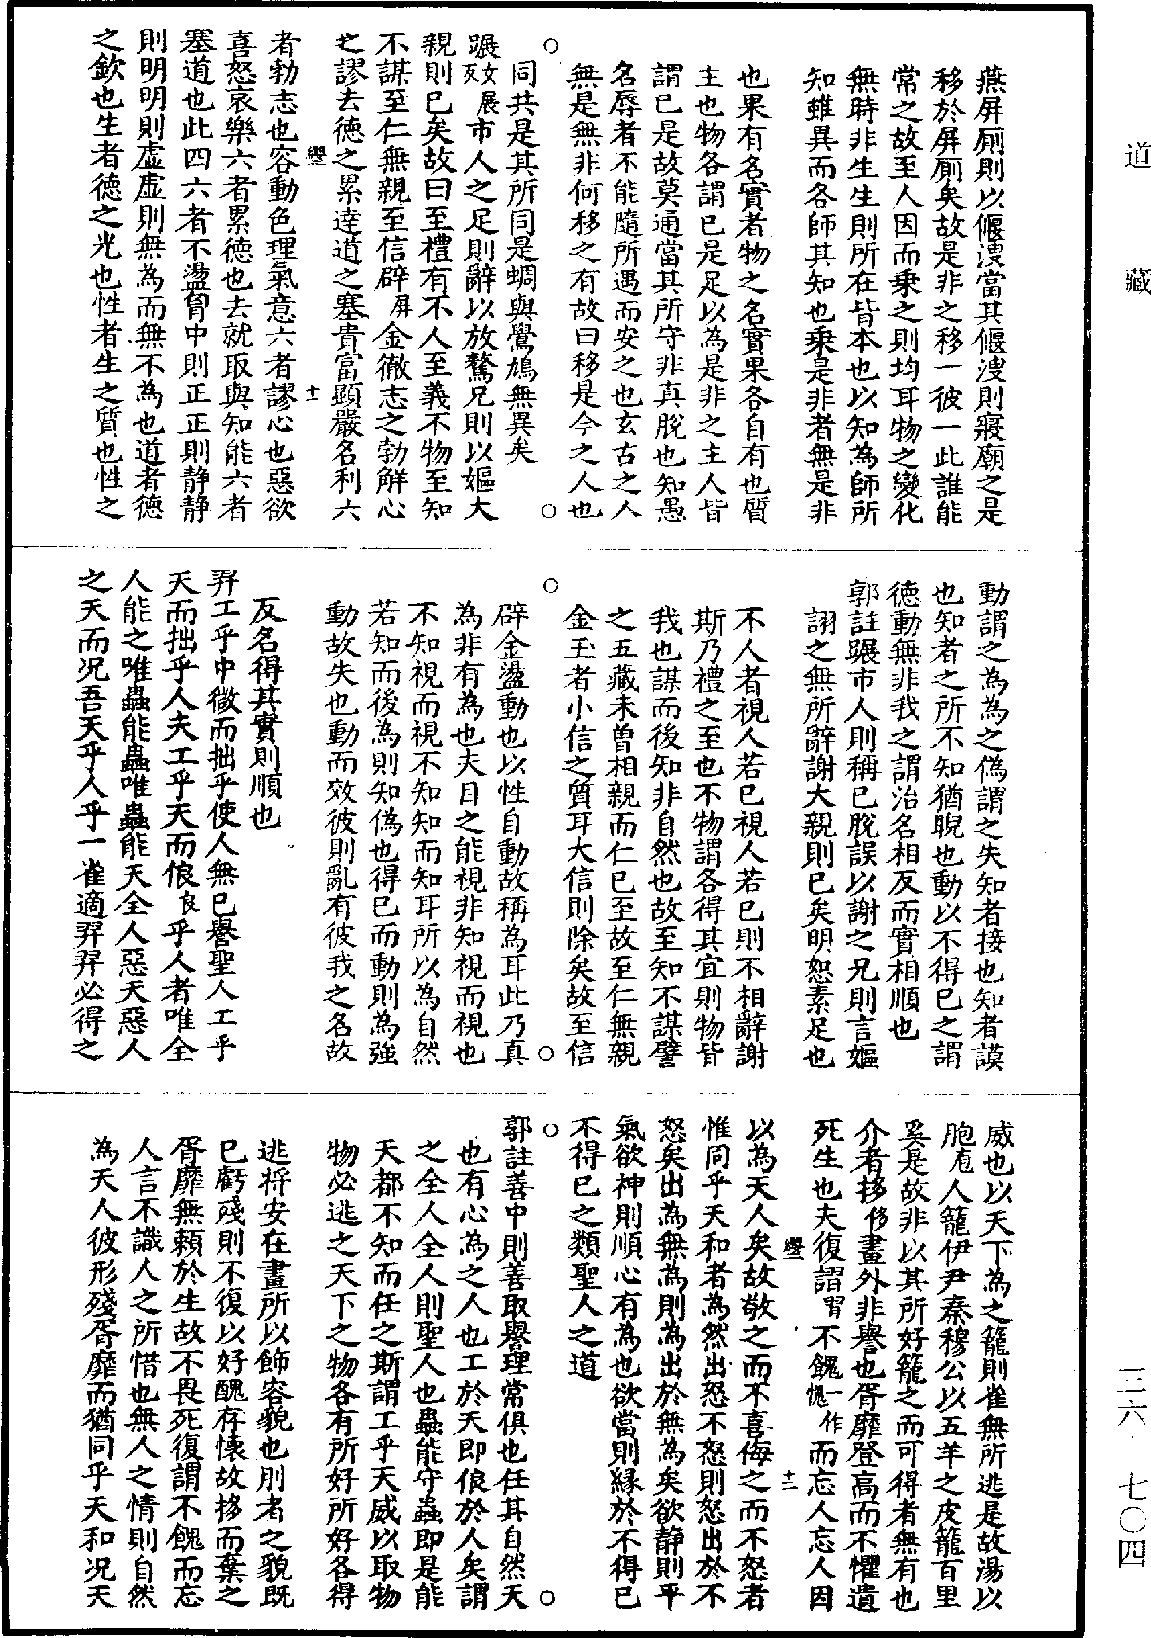 道藏
三六·七〇四
燕屏廁則以偃溲當其偃溲則寢廟之是
移於屏廁矣故是非之移一彼一此誰能
常之故至人因而乗之則均耳物之變化
無時非生生則所在皆本也以知為師所
知雖異而各師其知也乗是非者無是非
也果有名實者物之名實果各自有也質
主也物各謂已是足以為是非之主人皆
謂已是故莫通當其所守非真脫也知愚
名辱者不能隨所遇而安之也玄古之人
無是無非何移之有故曰移是今之人也
○○
同共是其所同是蜩與鷽鳩無異矣
蹍女展反市人之足則辭以放驁兄則以嫗大
親則已矣故曰至禮有不人至義不物至知
不謀至仁無親至信辟屏金徹志之勃解心
之謬去德之累達道之塞貴富顯嚴名利六
十一
者勃志也容動色理氣意六者謬心也惡欲
喜怒哀樂六者累德也去就取與知能六者
塞道也此四六者不盪胷中則正正則静静
則明明則虛虛則無為而無不為也道者德
之欽也生者德之光也性者生之質也性之
動謂之為為之偽謂之失知者接也知者謨
也知者之所不知猶睨也動以不得已之謂
德動無非我之謂治名相反而實相順也
郭註蹍市人則稱已脫誤以謝之兄則言嫗
詡之無所辭謝大親則已矣明恕素足也
不人者視人若已視人若已則不相辭謝
斯乃禮之至也不物謂各得其宜則物皆
我也謀而後知非自然也故至知不謀譬
之五藏未曾相親而仁已至故至仁無親
金玉者小信之質耳大信則除矣故至信
○○
辟金盪動也以性自動故稱為耳此乃真
為非有為也夫目之能視非知視而視也
不知視而視不知知而知耳所以為自然
若知而後為則知偽也得已而動則為強
動故失也動而效彼則亂有彼我之名故
反名得其實則順也
羿工乎中微而拙乎使人無已譽聖人工乎
天而拙乎人夫工乎天而俍良乎人者唯全
人能之唯蟲能蟲唯蟲能天全人惡天惡人
之天而况吾天乎人乎一雀適羿羿必得之
威也以天下為之籠則雀無所逃是故湯以
胞庖人籠伊尹秦穆公以五羊之皮籠百里
奚是故非以其所好籠之而可得者無有也
介者拸侈畫外非譽也胥靡登高而不懼遺
死生也夫復謵習不餽愧一作而忘人忘人因
十二
以為天人矣故敬之而不喜侮之而不怒者
惟同乎天和者為然出怒不怒則怒出於不
怒矣出為無為則為出於無為矣欲静則平
氣欲神則順心有為也欲當則縁於不得已
不得已之類聖人之道
○○
郭註善中則善取譽理常俱也任其自然天
也有心為之人也工於天即俍於人矣謂
之全人全人則聖人也蟲能守蟲即是能
天都不知而任之斯謂工乎天威以取物
物必逃之天下之物各有所好所好各得
逃将安在畫所以飾容貌也刖者之貌既
已虧殘則不復以好醜存懷故拸而棄之
胥靡無賴於生故不畏死復謂不餽而忘
人言不識人之所惜也無人之情則自然
為天人彼形殘胥靡而猶同乎天和况天